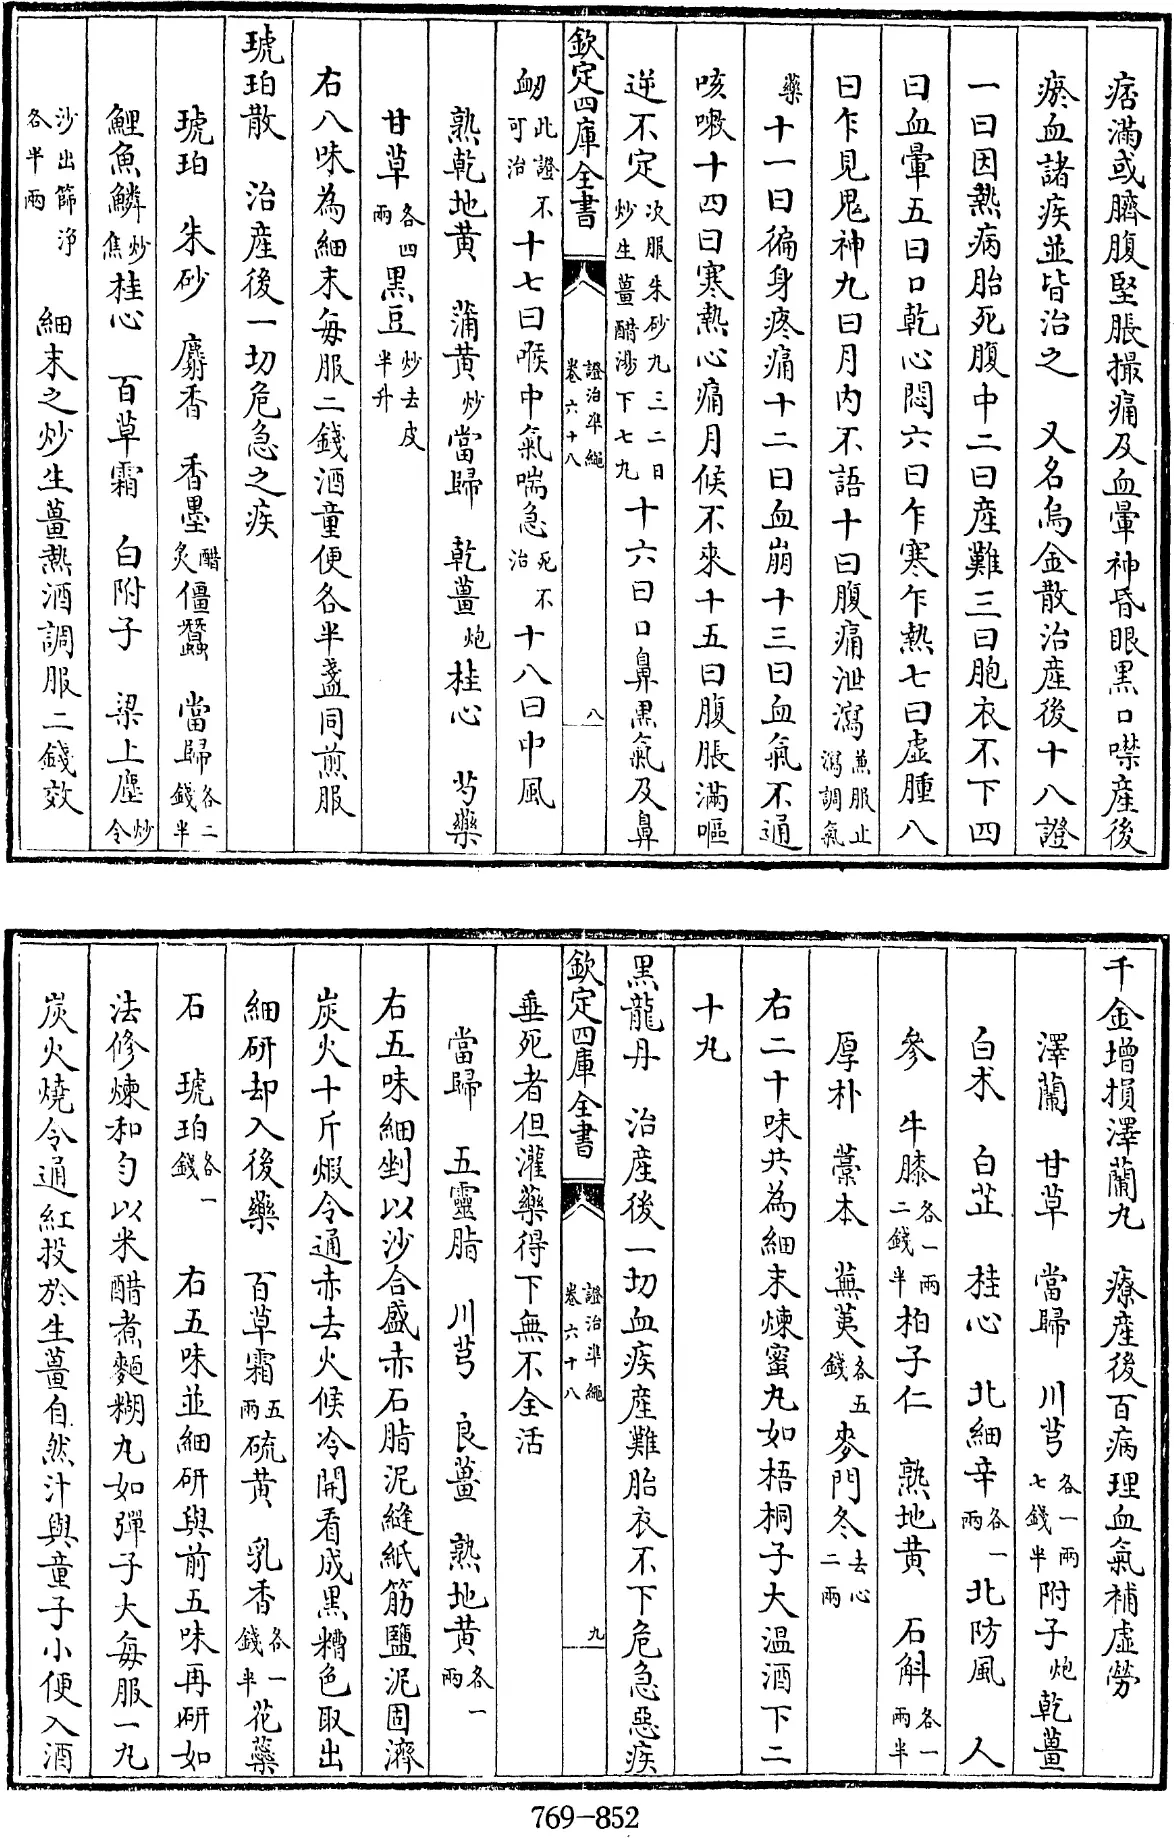 痞滿或臍腹堅脹撮痛及血暈神昏眼黒口噤産後
瘀血諸疾並皆治之　又名烏金散治産後十八證
一曰因熱病胎死腹中二曰産難三曰胞衣不下四
曰血暈五曰口乾心悶六曰乍寒乍熱七曰虛腫八
曰乍見鬼神九曰月内不語十曰腹痛泄瀉兼服止瀉調氣
藥十一曰徧身疼痛十二曰血崩十三曰血氣不通
咳嗽十四曰寒熱心痛月候不來十五曰腹脹滿嘔
逆不定次服朱砂丸三二日炒生薑醋湯下七丸十六曰口鼻黒氣及鼻
欽定四庫全書　證治凖繩卷六十八　八
衂此證不可治十七曰喉中氣喘急死不治十八曰中風
熟乾地黄　蒲黄炒當歸　乾薑炮桂心　芍藥
甘草各四兩黒豆炒去皮半升
右八味為細末每服二錢酒童便各半盞同煎服
琥珀散　治産後一切危急之疾
琥珀　朱砂　麝香　香墨醋炙僵蠶　當歸各二錢半
鯉魚鱗炒焦桂心　百草霜　白附子　梁上塵炒令
沙出篩淨各半兩　細末之炒生薑熱酒調服二錢效
千金增損澤蘭丸　療産後百病理血氣補虛勞
澤蘭　甘草　當歸　川芎各一兩七錢半附子炮乾薑
白术　白芷　桂心　北細辛各一兩北防風　人
參　牛膝各一兩二錢半柏子仁　熟地黄　石斛各一兩半
厚朴　藁本　蕪荑各五錢麥門冬去心二兩
右二十味共為細末煉蜜丸如梧桐子大温酒下二
十丸
黒龍丹　治産後一切血疾産難胎衣不下危急惡疾
欽定四庫全書　證治準繩卷六十八　九
垂死者但灌藥得下無不全活
當歸　五靈脂　川芎　良薑　熟地黄各一兩
右五味細剉以沙合盛赤石脂泥縫紙筋鹽泥固濟
炭火十斤煅令通赤去火候冷開看成黒糟色取出
細研却入後藥　百草霜五兩硫黄　乳香各一錢半花蘂
石　琥珀各一錢　右五味並細研與前五味再研如
法修煉和勻以米醋煮麵糊丸如彈子大每服一丸
炭火燒令通紅投於生薑自然汁與童子小便入酒
769-852